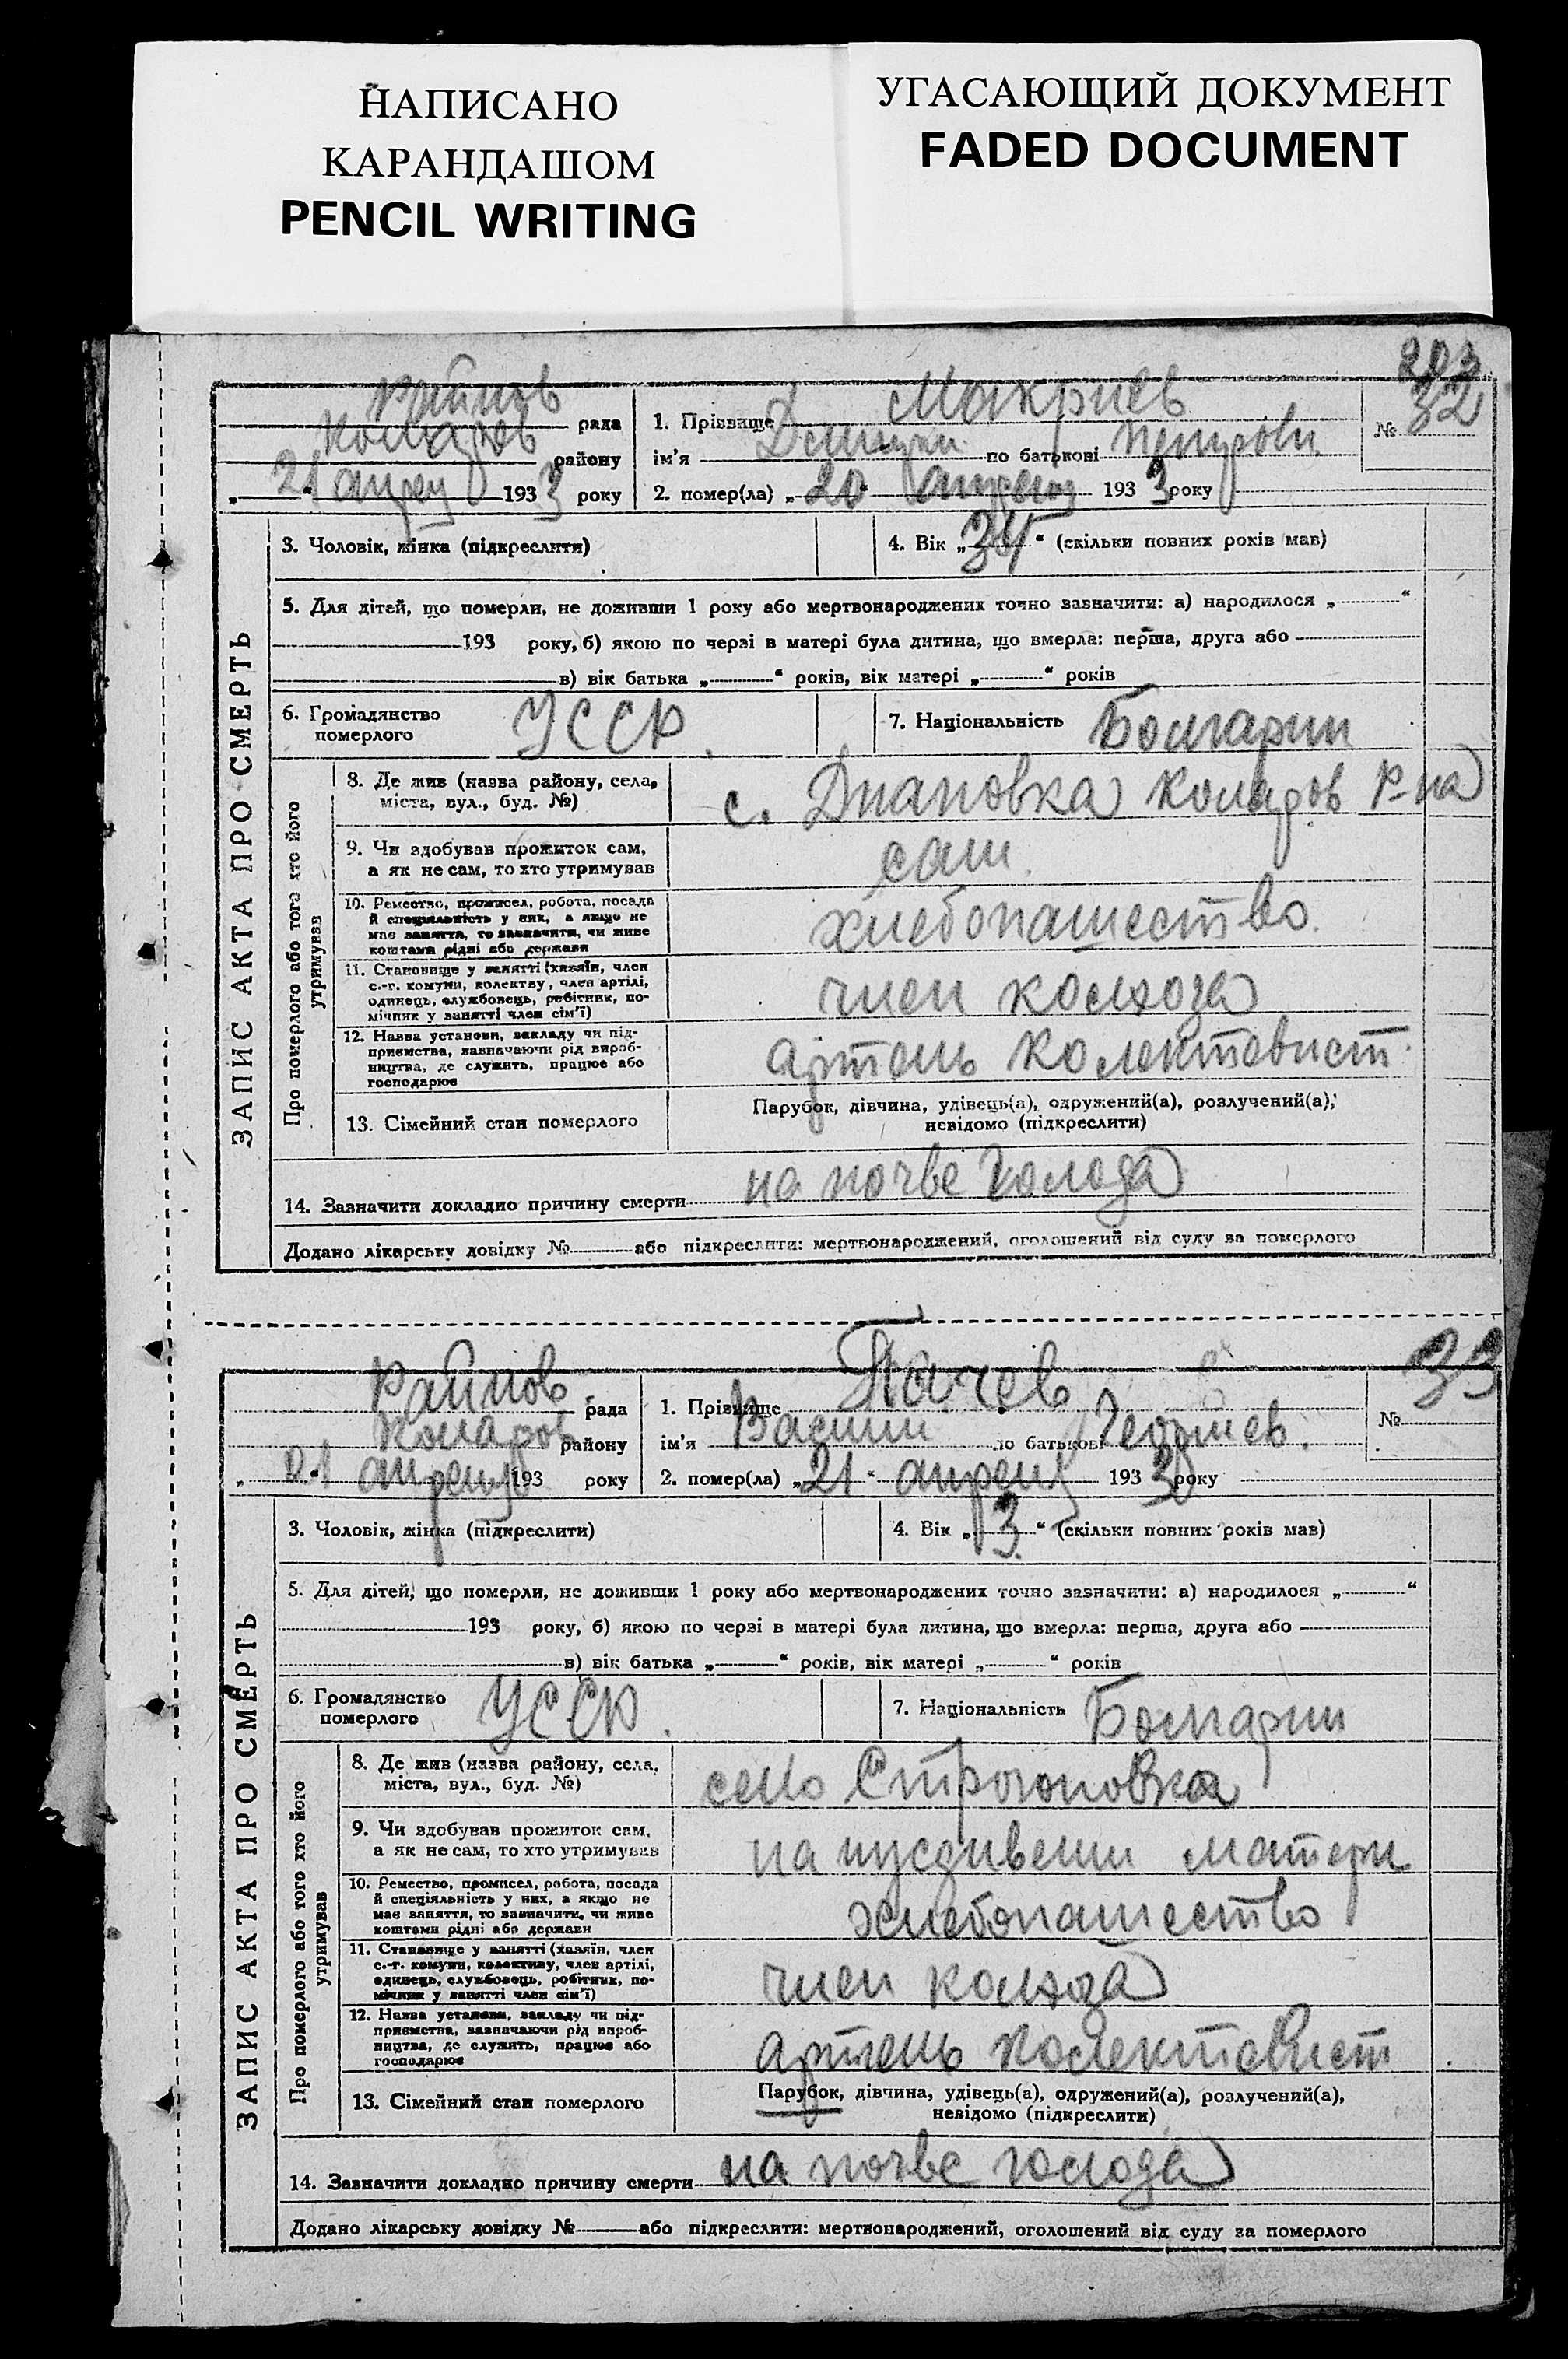 НАПИСАНО
КАРАНДАШОМ
PENCIL WRITING
УГАСАЮЩИЙ ДОКУМЕНТ
FADED DOCUMENT
203
ЗАПИС АКТА ПРО СМЕРТЬ
Райнов рада
Коларов району
„21“ апреля 1933 року
1. Прізвище Макриев
ім'я по батькові Петрови
2. помер(ла) „20“ апреля 1933 року
№ 32
3. Чоловік, жінка (підкреслити)
4. Вік „34“ (скільки повних років мав)
5. Для дітей, що померли, не доживши 1 року або мертвонароджених точно зазначити: а) народилося „ “
193 року, б) якою по черзі в матері була дитина, що вмерла: перша, друга або
в) вік батька „ “ років, вік матері „ “ років
6. Громадянство померлого УССР.
7. Національність Болгарин
Про померлого або того хто його утримував
8. Де жив (назва району, села,
міста, вул., буд. №)
с. Диановка Коларов р-на
9. Чи здобував прожиток сам,
а як не сам, то хто утримував
сам.
10. Ремество, промисел, робота, посада
й спеціяльність у них, а якщо не
має заняття, то зазначити, чи живе
коштами рідні або держави
хлебопашество.
11. Становище у занятті (хазяїн, член
с.-г. комуни, колектву, член артілі,
одинець, службовець, робітник, по-
мічник у занятті член сім'ї)
член колхоза
12. Назва установи, закладу чи під-
приємства, зазначаючи рід вироб-
ництва, де служить, працює або
господарює
артель колектевист.
13. Сімейний стан померлого
Парубок, дівчина, удівець(а), одружений(а), розлучений(а),
невідомо (підкреслити)
14. Зазначити докладно причину смерти на почве голода
Додано лікарську довідку № або підкреслити: мертвонароджений, оголошений від суду за померлого
ЗАПИС АКТА ПРО СМЕРТЬ
Райнов рада
Коларов району
„21“ апреля 193 року
1. Прізвище Пачев
ім'я Васили по батькові Георгиев.
2. помер(ла) „21“ апреля 1933 року
№ 33
3. Чоловік, жінка (підкреслити)
4. Вік „3“ (скільки повних років мав)
5. Для дітей, що померли, не доживши 1 року або мертвонароджених точно зазначити: а) народилося „ “
193 року, б) якою по черзі в матері була дитина, що вмерла: перша, друга або
в) вік батька „ “ років, вік матері „ “ років
6. Громадянство померлого УССР.
7. Національність Болгарин
Про померлого або того хто його утримував
8. Де жив (назва району, села,
міста, вул., буд. №)
село Строгоновка
9. Чи здобував прожиток сам,
а як не сам, то хто утримував
на матери
10. Ремество, промисел, робота, посада
й спеціяльність у них, а якщо не
має заняття, то зазначити, чи живе
коштами рідні або держави
хлебопашество
11. Становище у занятті (хазяїн, член
с.-г. комуни, колективу, член артілі,
одинець, службовець, робітник, по-
мічник у занятті член сім'ї)
член колхоза
12. Назва установи, закладу чи під-
приємства, зазначаючи рід вироб-
ництва, де служить, працює або
господарює
артель колектевист
13. Сімейний стан померлого
Парубок, дівчина, удівець(а), одружений(а), розлучений(а),
невідомо (підкреслити)
14. Зазначити докладно причину смерти на почве голода
Додано лікарську довідку № або підкреслити: мертвонароджений, оголошений від суду за померлого